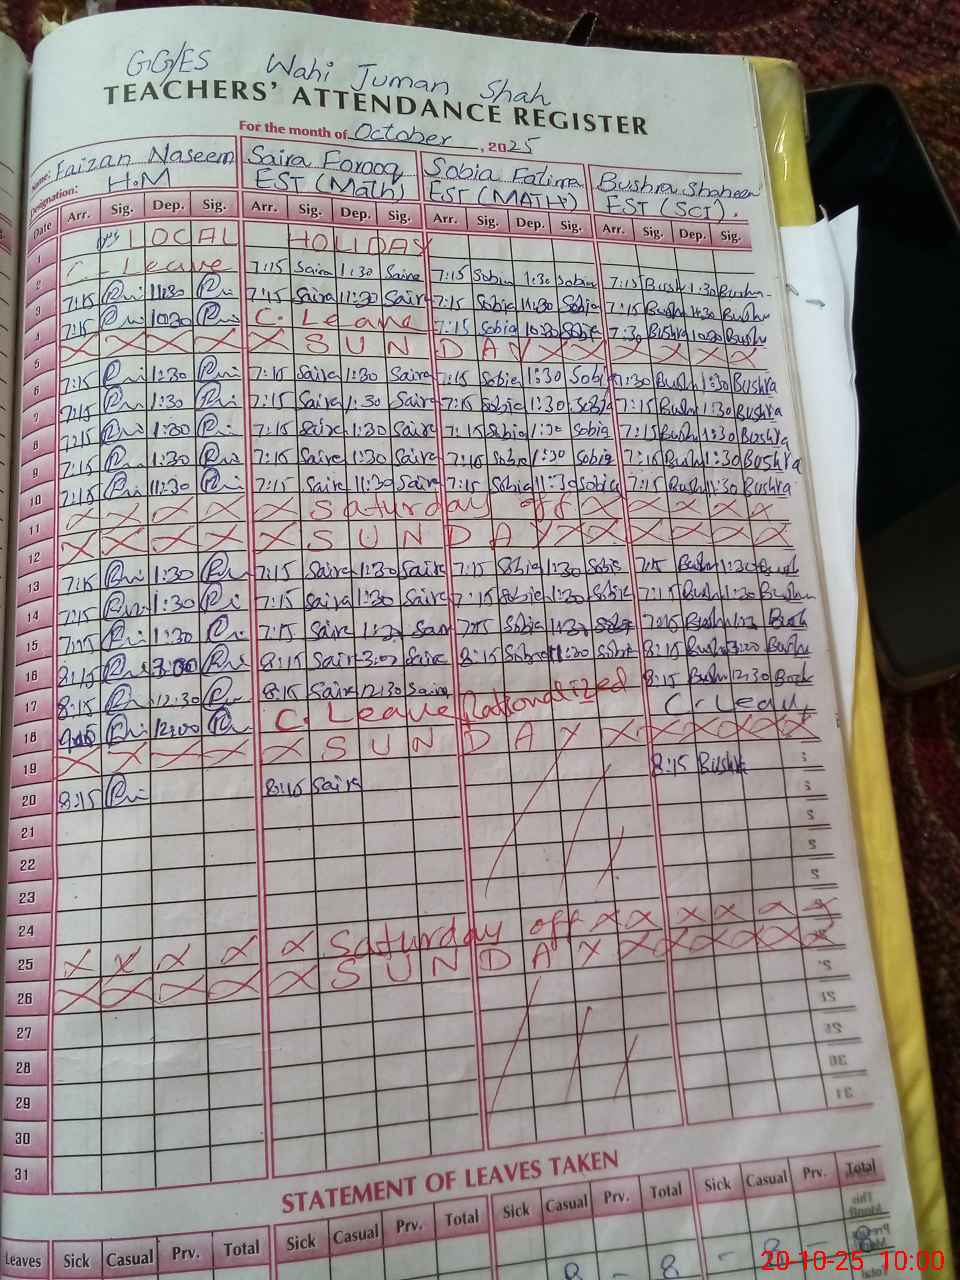 GG/ES Wahi Juman Shah
TEACHERS' ATTENDANCE REGISTER
For the month of October, 2025
Name: Faizan Naseem Saira Farooq Sobia Fatima Bushra Shaheen
Designation: H.M EST (Math) EST (MATH) EST (SCI).
Date Arr. Sig. Dep. Sig. Arr. Sig. Dep. Sig. Arr. Sig. Dep. Sig. Arr. Sig. Dep. Sig.
1 LOCAL HOLIDAY
2 C. Leave 7:15 Saira 1:30 Saira 7:15 Sobia 1:30 Sobia 7:15 Bush 1:30 Bushra
3 7:15 11:30 7:15 Saira 11:30 Saira 7:15 Sobia 11:30 Sobia 7:15 Bush 11:30 Bushra
4 7:15 10:30 C. Leave 7:15 Sobia 10:30 Sobia 7:30 Bushra 10:30 Bush
5 X X X X X S U N D A Y X X X X X X
6 7:15 1:30 7:15 Saira 1:30 Saira 7:15 Sobia 1:30 Sobi Bush 1:30 Bushra
7 7:15 1:30 7:15 Saira 1:30 Saira 7:15 Sobia 1:30 Sobia 7:15 Bush 1:30 Bushra
8 7:15 1:30 7:15 Saira 1:30 Saira 7:15 Sobia 1:30 Sobia 7:15 Bush 1:30 Bushra
9 7:15 1:30 7:15 Saira 1:30 Saira 7:15 Sobia 1:30 Sobia 7:15 Bush 1:30 Bushra
10 7:15 11:30 7:15 Saira 11:30 Saira 7:15 Sobia 11:30 Sobia 7:15 Bush 11:30 Bushra
11 X X X X X Saturday off X X X X X
12 X X X X X S U N D A Y X X X X X X
13 7:15 1:30 7:15 Saira 1:30 Saira 7:15 Sobia 1:30 Sobia 7:15 Bush 1:30 Bush
14 7:15 1:30 7:15 Saira 1:30 Saira 7:15 Sobia 1:30 Sobia 7:15 Bush 1:30 Bush
15 7:15 1:30 7:15 Saira 1:30 Sair 7:15 Sobia Sobia 7:15 Bush Bush
16 8:15 3:00 8:15 Saira 3:00 Saira 8:15 Sobia Sobia 8:15 Bush 3:00 Bush
17 8:15 12:30 8:15 Saira 12:30 Saira Rationalized 8:15 Bush 12:30 Bush
18 12:00 C. Leave C. Leav
19 X X X X X S U N D A Y X X X X X X
20 8:15 8:15 Saira 8:15 Bushra
21
22
23
24
25 X X X X X Saturday off X X X X X X
26 X X X X X S U N D A Y X X X X X X
27
28
29
30
31
STATEMENT OF LEAVES TAKEN
Leaves Sick Casual Prv. Total Sick Casual Prv. Total Sick Casual Prv. Total Sick Casual Prv. Total
8 - 8 - 8 -
20-10-25 10:00